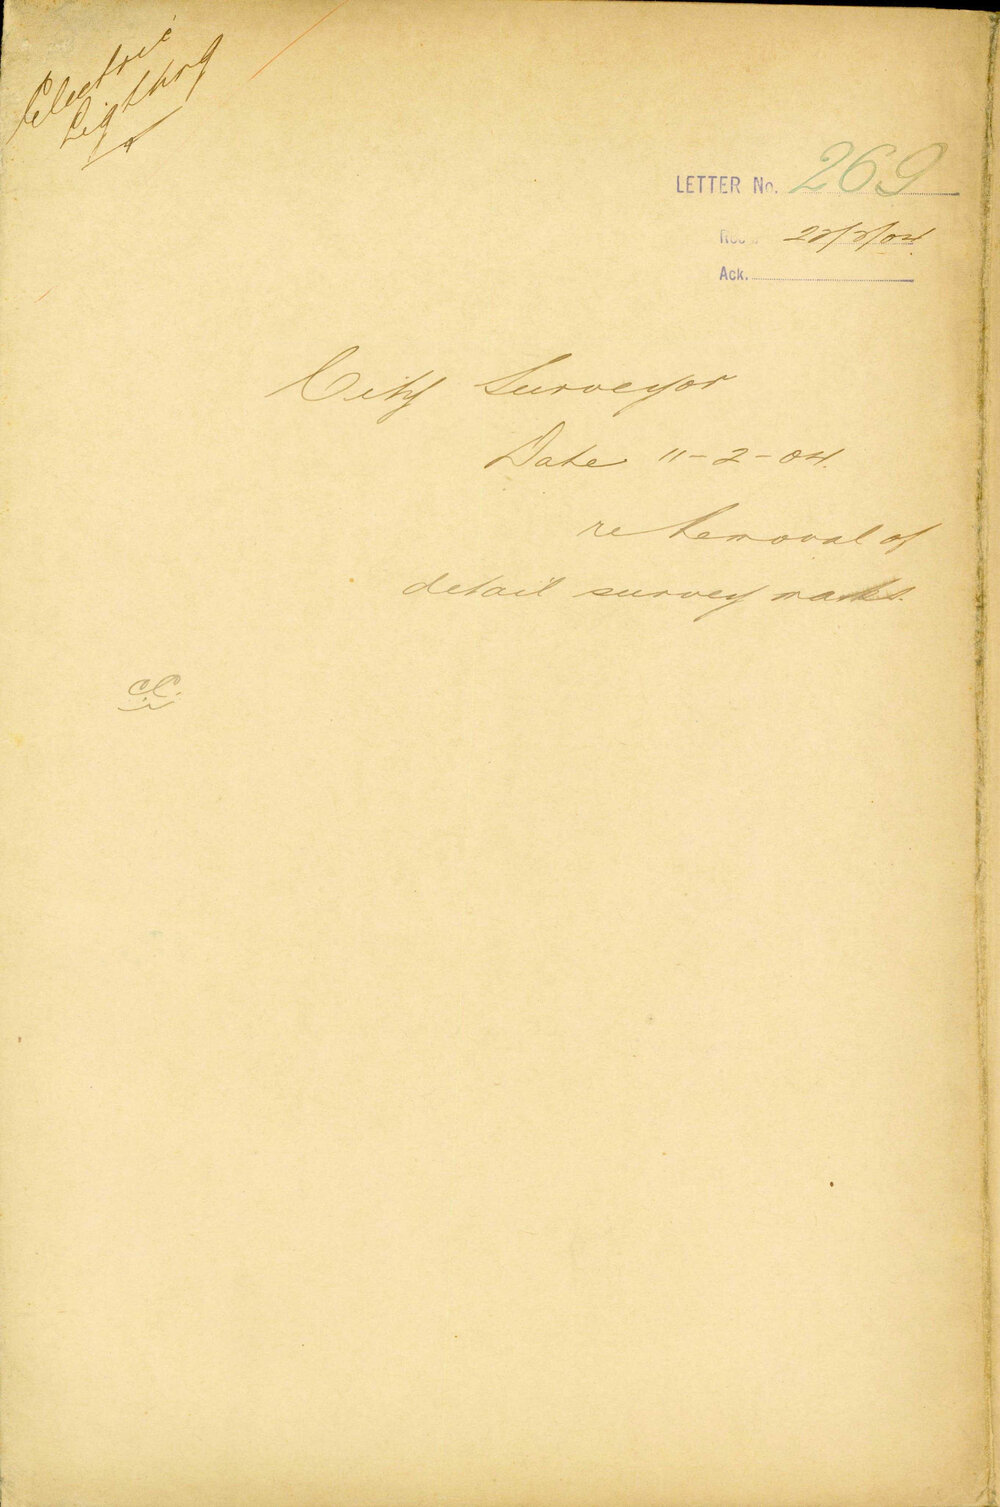 Electric
Lighting
LETTER No. 269
Rec 22/2/04
Ack.
City Surveyor
Date 11-2-04.
re removal of
detail survey marks.
CC.